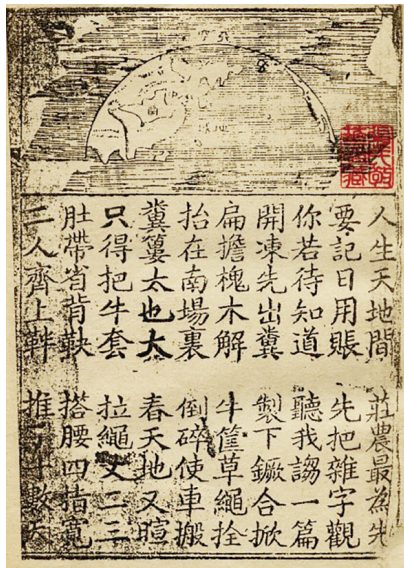 人生天地間 莊農最為先
要記日用賬 先把雜字觀
你若待知道 聽我謅一篇
開凍先出糞 製下鐝合掀
扁擔槐木解 牛筐草繩拴
抬在南場裏 倒碎使車搬
糞簍太也大 春天地又暄
只得把牛套 拉繩丈二三
肚帶省背鞅 搭腰四指寬
二人齊上靽 推十數天